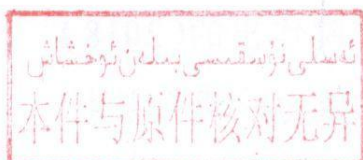 ئەسلى نۇسقىسى بىلەن ئوخشاش
本件与原件核对无异